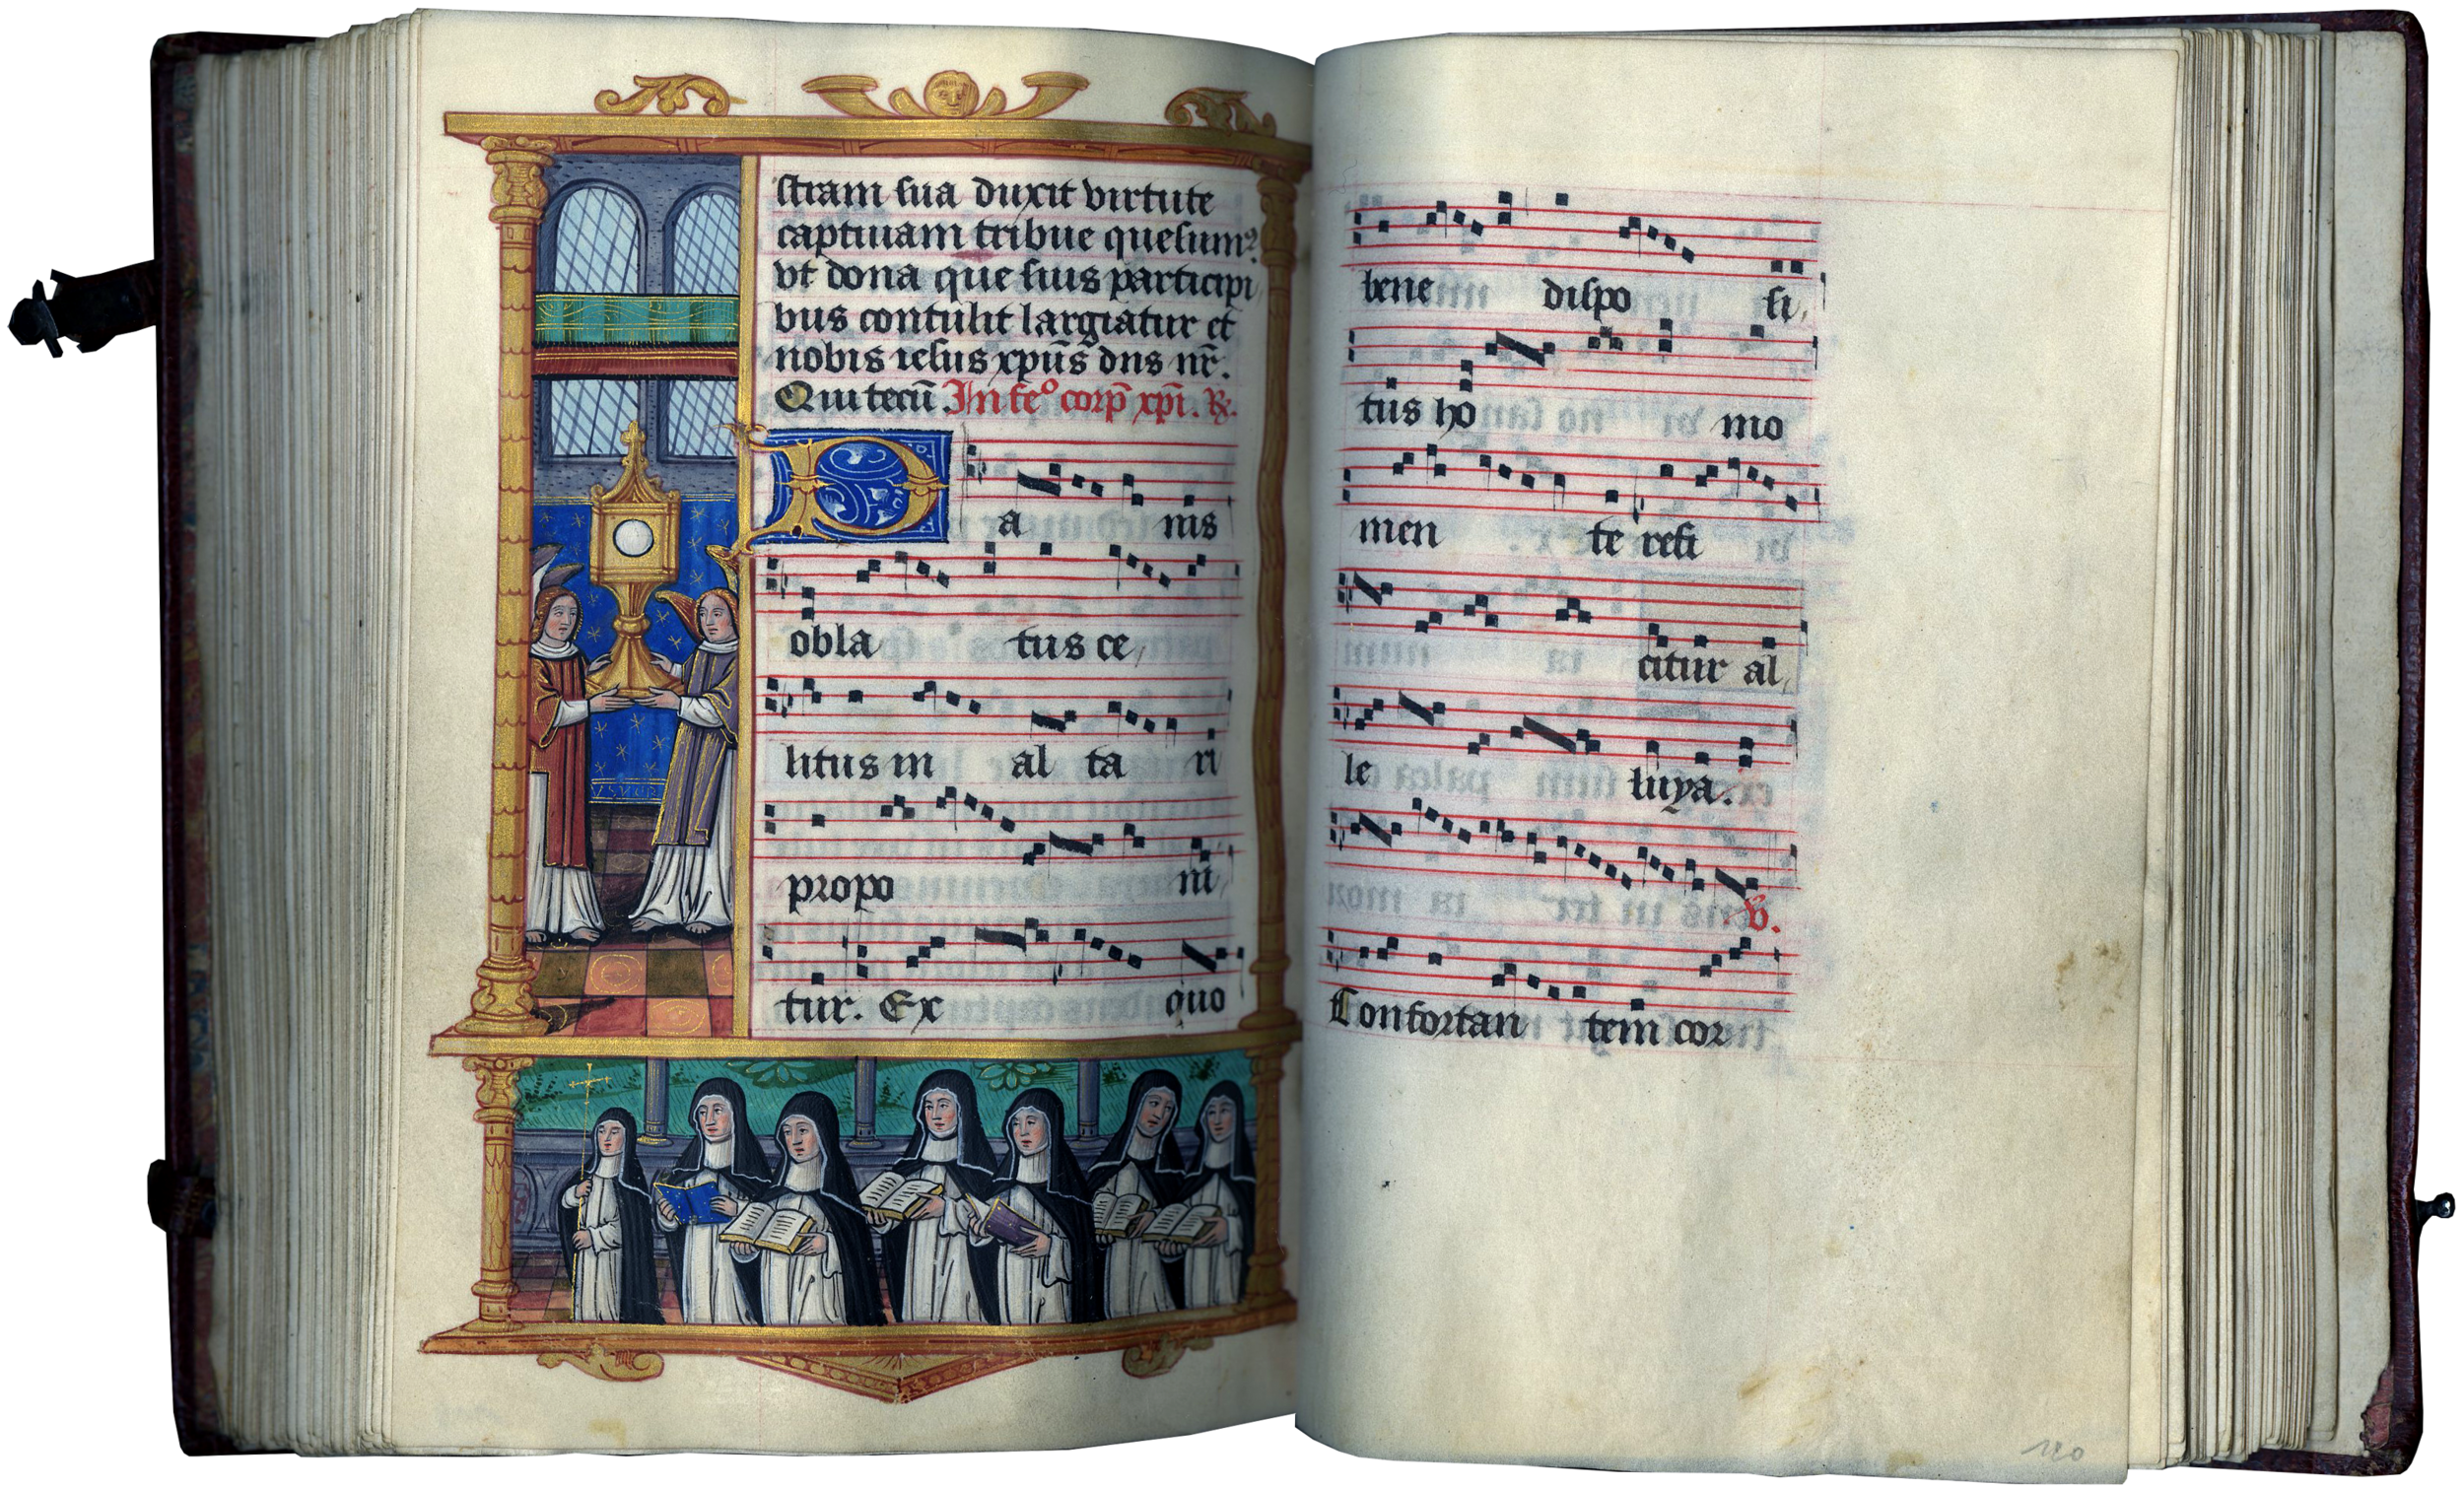 stram sua duxit virtute
captiuam tribue quesumꝰ
vt dona que suis participi
bus contulit largiatur et
nobis iesus xpūs dns nr̄.
Qui tecū. In feᵒ corp̄ xpi. ℟.
Pa nis
obla tus ce,
litus in al ta ri
propo ni,
tur. Ex quo
bene dispo si,
tus ho mo
men te refi
citur al,
le luya.
℣.
Confortan tem cor
120